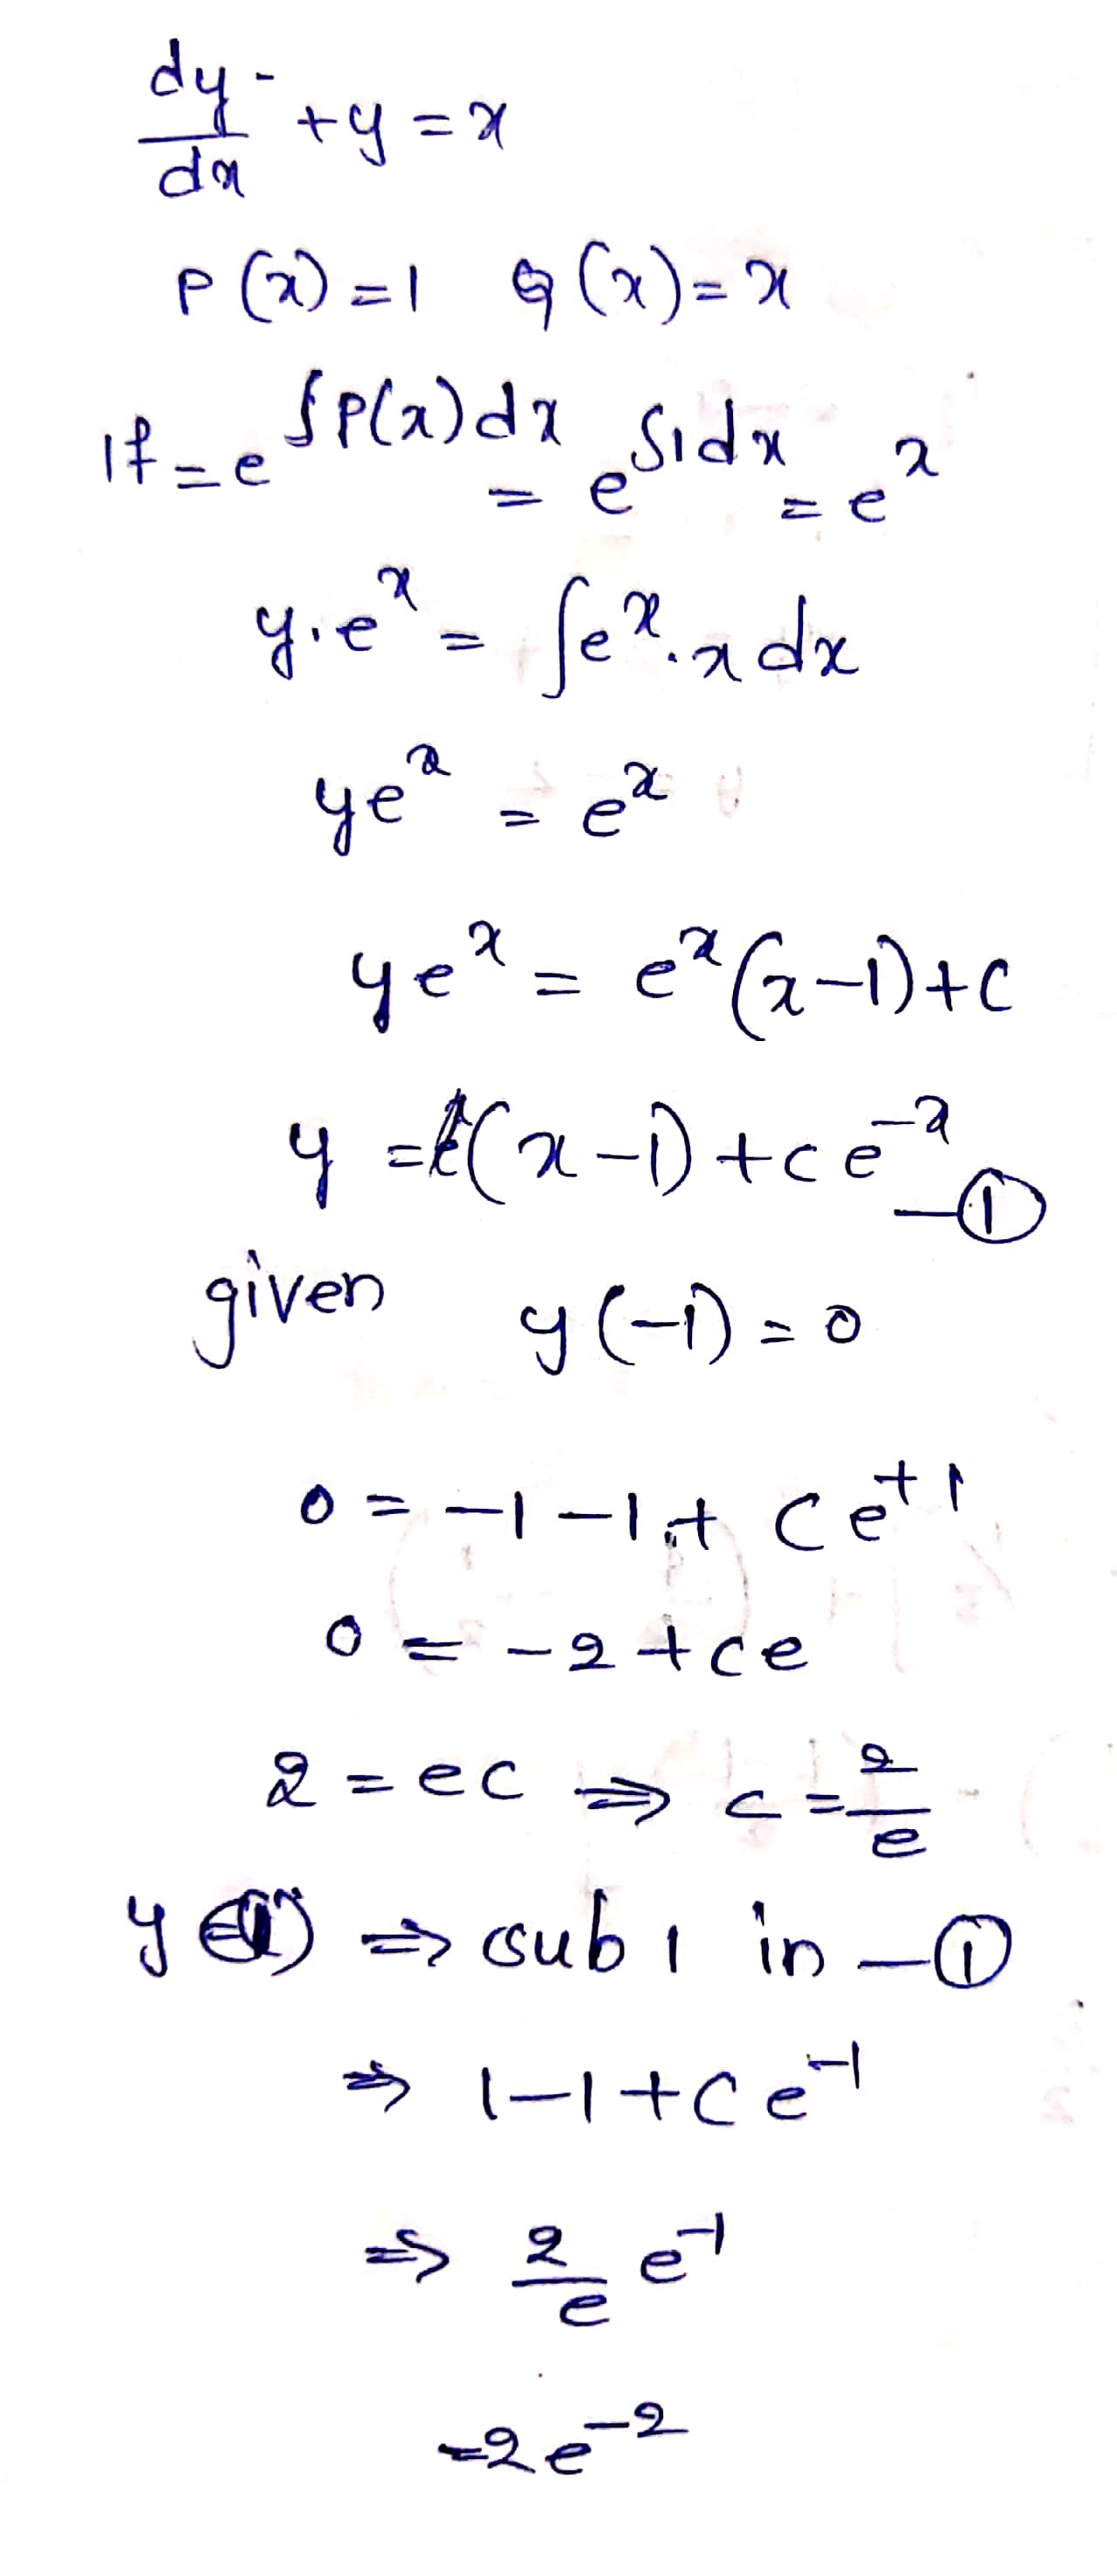 dy/dx + y = x
P(x) = 1 Q(x) = x
If = e^∫P(x)dx = e^∫1dx = e^x
y.e^x = ∫e^x.x dx
ye^x = e^x
ye^x = e^x(x-1)+c
y = (x-1)+ce^-x —①
given y(-1) = 0
0 = -1-1+ ce^+1
0 = -2+ce
2 = ec ⇒ c = 2/e
y(1) ⇒ sub 1 in —①
⇒ 1-1+ce^-1
⇒ 2/e e^-1
=2e^-2